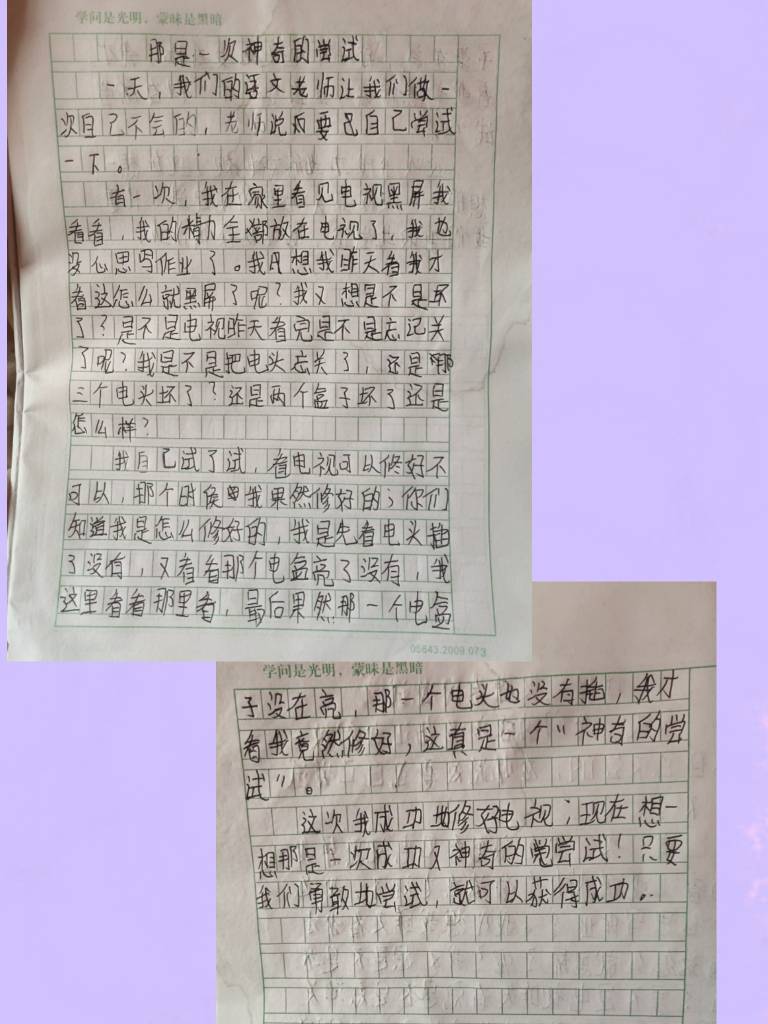 学问是光明，蒙昧是黑暗
那是一次神奇的尝试
一天，我们的语文老师让我们做一
次自己不会的，老师说后要己自己尝试
一下。
有一次，我在家里看见电视黑屏我
看看，我的精力全部放在电视了，我也
没心思写作业了。我只想我昨天看我才
看这怎么就黑屏了呢？我又想是不是坏
了？是不是电视昨天看完是不是忘记关
了呢？我是不是把电头忘关了，还是哪
三个电头坏了？还是两个盒子坏了还是
怎么样？
我自己试了试，看电视可以修好不
可以，那个时候我果然修好的；你们
知道我是怎么修好的，我是先看电头插
了没有，又看看那个电盒亮了没有，我
这里看看那里看，最后果然那一个电盒
05643.2009.073
学问是光明，蒙昧是黑暗
子没在亮，那一个电头也没有插，我才
看我竟然修好，这真是一个“神奇的尝
试”。
这次我成功地修好电视；现在想一
想那是一次成功又神奇的尝试！只要
我们勇敢地尝试，就可以获得成功。